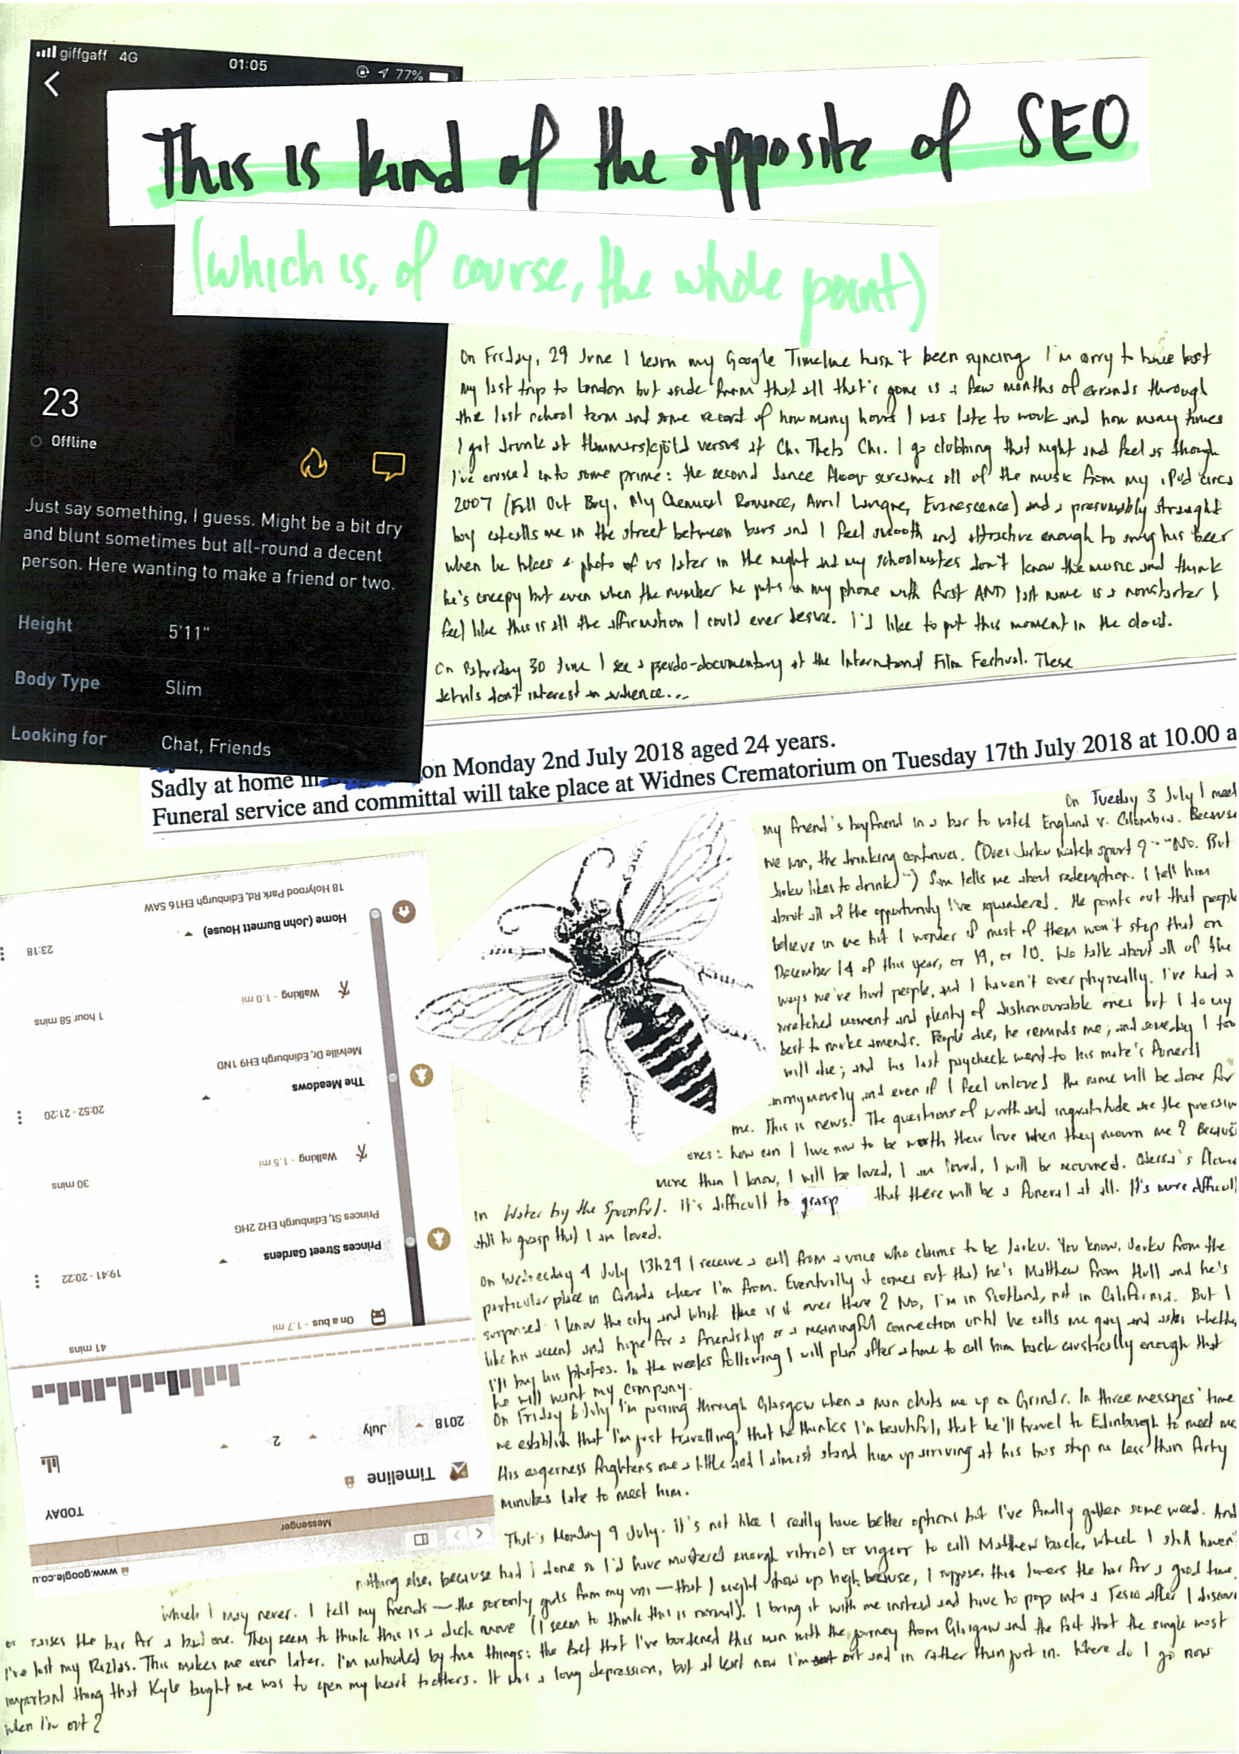 giffgaff 4G 01:05 77%
This is kind of the opposite of SEO
(which is, of course, the whole point)
23
Offline
Just say something, I guess. Might be a bit dry
and blunt sometimes but all-round a decent
person. Here wanting to make a friend or two.
Height 5'11"
Body Type Slim
Looking for Chat, Friends
On Friday, 29 June I learn my Google Timeline hasn't been syncing. I'm sorry to have lost
my last trip to London but aside from that all that's gone is a few months of errands through
the last school term and some record of how many hours I was late to work and how many times
I got drunk at Hammarskjöld versus at Chi Theta Chi. I go clubbing that night and feel as though
I've crossed into some prime: the second dance floor screams all of the music from my iPod circa
2007 (Fall Out Boy, My Chemical Romance, Avril Lavigne, Evanescence) and a presumably straight
boy catcalls me in the street between bars and I feel smooth and attractive enough to swig his beer
when he takes a photo of us later in the night and my schoolmates don't know the music and think
he's creepy but even when the number he puts in my phone with first AND last name is a nonstarter I
feel like this is all the affirmation I could ever desire. I'd like to put this moment in the cloud.
On Saturday 30 June I see a pseudo-documentary at the International Film Festival. These
details don't interest an audience...
on Monday 2nd July 2018 aged 24 years.
Sadly at home in
Funeral service and committal will take place at Widnes Crematorium on Tuesday 17th July 2018 at 10.00 a
On Tuesday 3 July I meet
my friend's boyfriend in a bar to watch England v. Colombia. Because
we win, the drinking continues. (Does Jarku watch sport? "No. But
Jarku likes to drink.") Sam tells me about redemption. I tell him
about all of the opportunity I've squandered. He points out that people
believe in me but I wonder if most of them won't stop that on
December 14 of this year, or 19, or 10. We talk about all of the
ways we've hurt people, and I haven't ever physically. I've had a
wretched moment and plenty of dishonourable ones but I do my
best to make amends. People die, he reminds me; and someday I too
will die; and his last paycheck went to his mate's funeral
anonymously and even if I feel unloved the same will be done for
me. This is news. The questions of worth and ingratitude are the pressing
ones: how can I live now to be worth their love when they mourn me? Because
more than I know, I will be loved, I am loved, I will be mourned. Odessa's
in Water by the Spoonful. It's difficult to grasp that there will be a funeral at all. It's more difficult
still to grasp that I am loved.
On Wednesday 4 July 13h29 I receive a call from a voice who claims to be Jarku. You know, Jarku from the
particular place in Canada where I'm from. Eventually it comes out that he's Matthew from Hull and he's
surprised I know the city and what time is it over there? No, I'm in Scotland, not in California. But I
like his accent and hope for a friendship or a meaningful connection until he calls me gay and asks whether
I'll buy his photos. In the weeks following I will plan after a time to call him back caustically enough that
he will want my company.
On Friday 6 July I'm passing through Glasgow when a man chats me up on Grindr. In three messages' time
we establish that I'm just travelling, that he thinks I'm beautiful, that he'll travel to Edinburgh to meet me.
His eagerness frightens me a little and I almost stand him up arriving at his bus stop no less than forty
minutes late to meet him.
That's Monday 9 July. It's not like I really have better options but I've finally gotten some weed. And
nothing else, because had I done so I'd have mustered enough vitriol or vigour to call Matthew back, which I still haven't
which I may never. I tell my friends — the sorority girls from my uni — that I might show up high because, I suppose, this lowers the bar for a good time
or raises the bar for a bad one. They seem to think this is a dick move (I seem to think this is normal). I bring it with me instead and have to pop into a Tesco after I discover
I've lost my Rizlas. This makes me even later. I'm motivated by two things: the fact that I've burdened this man with the journey from Glasgow and the fact that the single most
important thing that Kyle taught me was to open my heart to others. It was a long depression, but at least now I'm out and in rather than just in. Where do I go now
when I'm out?
www.google.co.u
Messenger
TODAY
Timeline
2018 July 2
41 mins
On a bus - 1.7 mi
Princes Street Gardens 19:41 - 20:22
Princes St, Edinburgh EH2 2HG
30 mins
Walking - 1.5 mi
The Meadows 20:52 - 21:20
Melville Dr, Edinburgh EH9 1ND
1 hour 58 mins
Walking - 1.0 mi
Home (John Burnett House) 23:18
18 Holyrood Park Rd, Edinburgh EH16 5AW